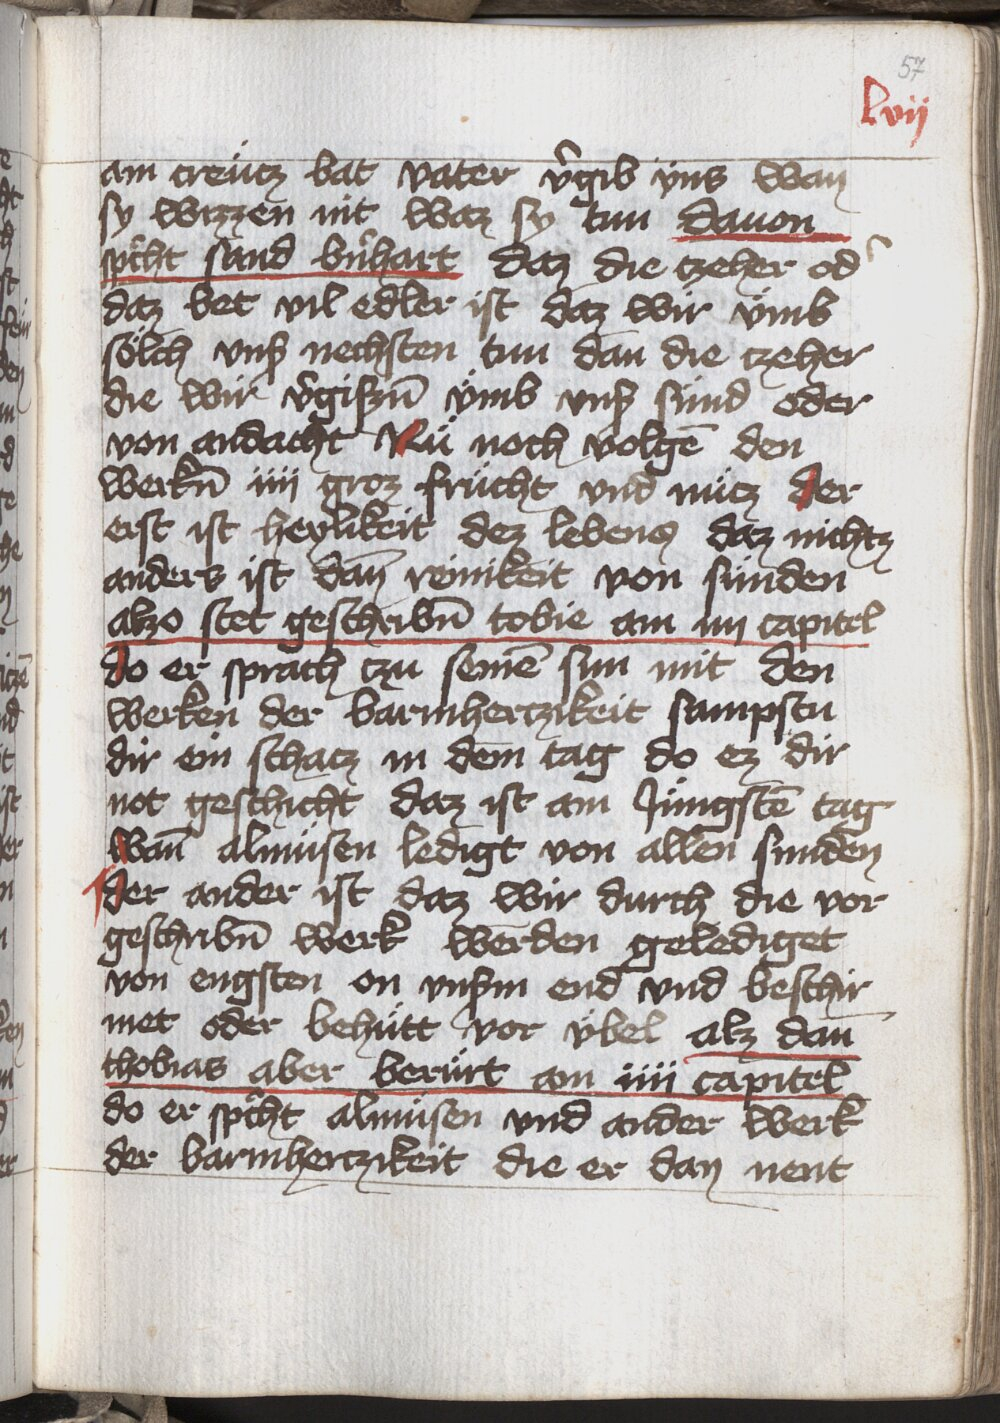 57
lvij
am creücz bat vater v̂gib ÿns wan
sy wizzen nit waz sy tun dauon
sp̂cht sand bn̂hart daz die czeher od̂
daz bet vil edler ist daz wir ÿmb
sölch vnsͥ nechsten tun dan die czeher
die wir v̂giszn̄ ÿmb vnsͥ sünd oder
von andacht Nü noch volgē den
werkn̄ iiii groz frücht vnd nücz der
erst ist heylikeit dez lebens daz nichtz
anders ist dan̄ reinikeit von sünden
alzo stet geschribn̄ tobie am iiij capitel
do er sprach czu seinē sun mit den
werken der barmherczikeit sampstu
dir ein schacz in dem tag do ez dir
not geschicht daz ist am Jüngstē tag
wan̄ almüsen ledigt von allen sunden
der ander ist daz wir durch die vor
geschribn̄ werk werden gelediget
von engsten on vnsͥm end vnd beschir
met oder behütt vor ÿbel alz dan̄
thobias aber berürt am iiii capitel
do er sp̂cht almüsen vnd ander werk
der barmherczikeit die er dan nent